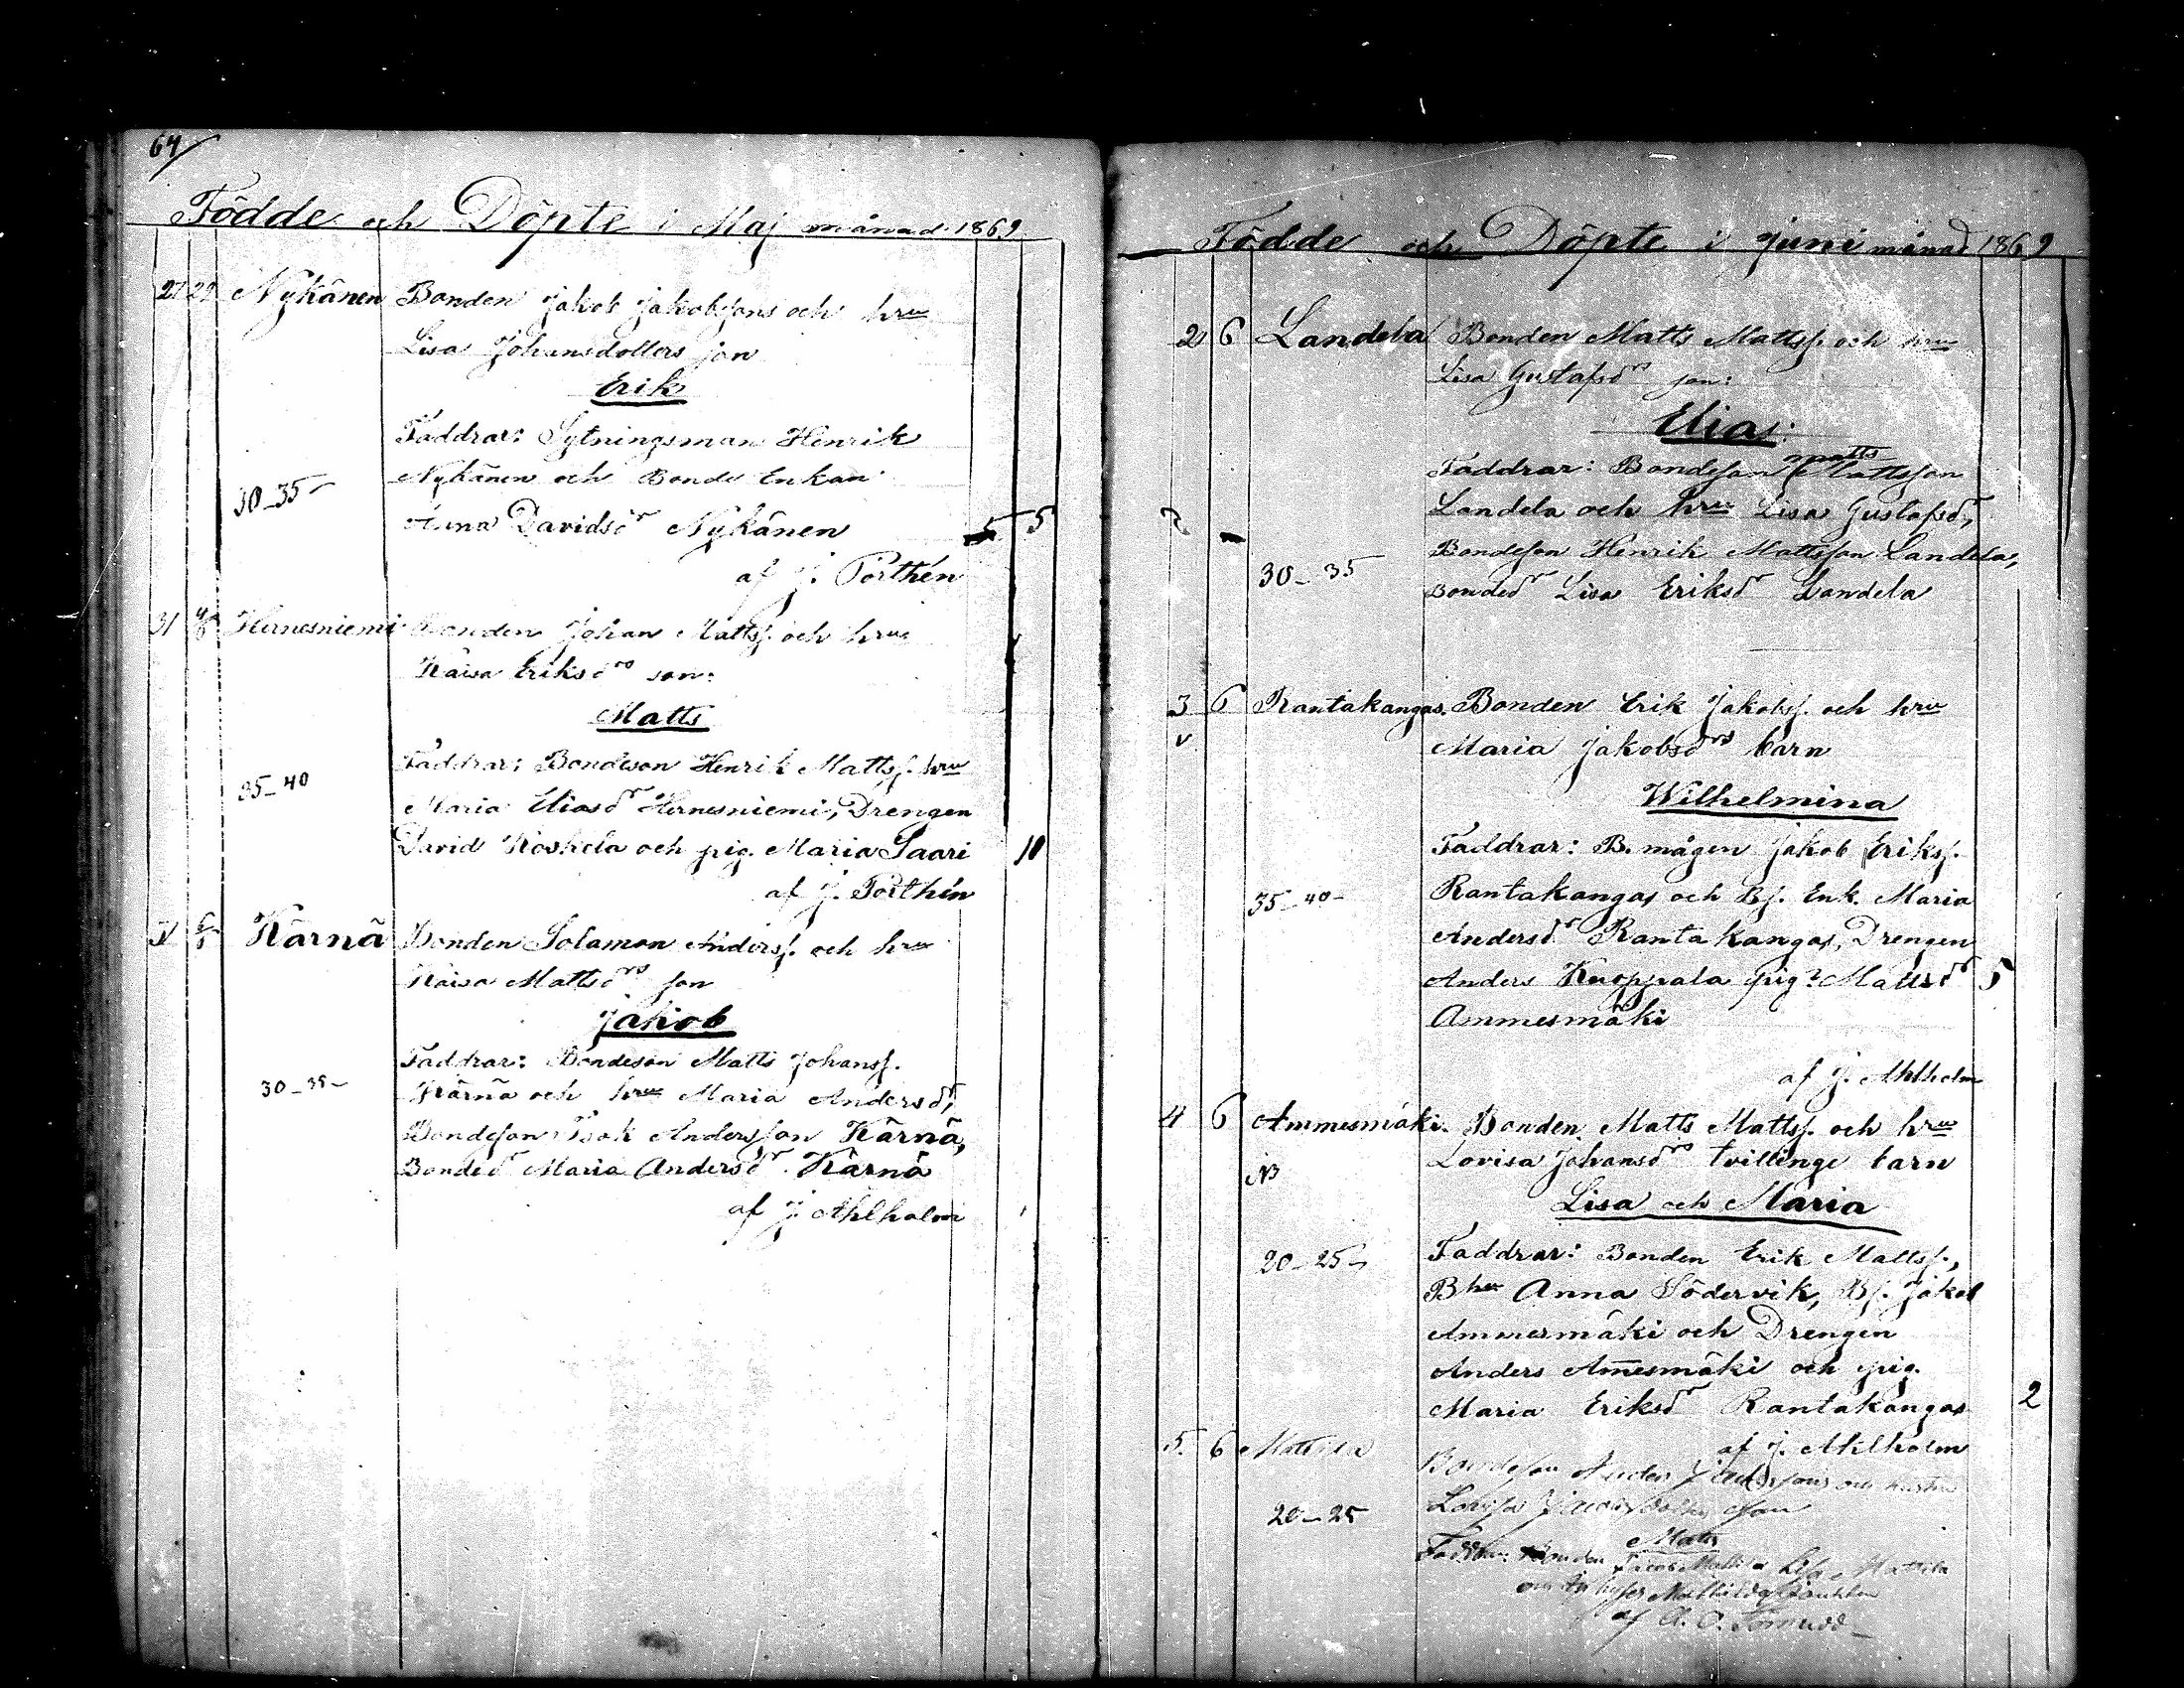 64
Födde och Döpte i Maj månad 1869
27 29 Nykänen Bonden Jakob Jakobsons och hru
Lisa Johansdotters son
Erik
Faddrar: Sytningsman Henrik
Nykänen och Bonde Enkan
30-35
Anna Davidsdr Nykänen 5 5
af J. Porthén
31 4/6 Hernesniemi Bonden Johan Mattss. och hru
Kaisa Eriksdrs son:
Matts
Faddrar: Bondeson Henrik Mattss. hru
35-40
Maria Eliasdr Hernesniemi, Drengen
David Koskela och pig. Maria Saari 10
af J. Porthén
Kärnä Bonden Salamon Anderss. och hru
Kaisa Mattsdrs son
Jakob
Faddrar: Bondeson Matts Johanss.
30-35
Kärnä och hru Maria Andersdr,
Bondeson Isak Andersson Kärnä,
Bondedr Maria Andersdr Kärnä
af J. Ahlholm
Födde och Döpte i Juni månad 1869
2 6 Landela Bonden Matts Mattss. och hru
Lisa Gustafsdrs son:
Elias
Faddrar: Bondeson Matts Mattsson
Landela och hru Lisa Gustafsdr,
Bondeson Henrik Mattsson Landela,
30-35
Bondedr Lisa Eriksdr Landela
3 6 Rantakangas. Bonden Erik Jakobss. och hru
v Maria Jakobsdrs barn
Wilhelmina
Faddrar: B. mågen Jakob Erikss.
35-40 Rantakangas och Bs. Enk. Maria
Andersdr Rantakangas, Drengen
Anders Kuoppala pig. Mattsdr 5
Ammesmäki
af J. Ahlholm
4 6 Ammesmäki. Bonden Matts Mattss. och hru
NB Lovisa Johansdrs tvillinge barn
Lisa och Maria
20-25 Faddrar: Bonden Erik Mattss.,
Bhu Anna Södervik, Bs. Jakob
Ammesmäki och Drengen
Anders Ammesmäki och pig.
Maria Eriksdr Rantakangas 2
af J. Ahlholm
5. 6 Mattila Bondeson Anders och hustru
20-25 Lovisa son
Matts
Faddrar: Bonden Jacob Mattila Lisa Mattila
af A. O. Törnudd